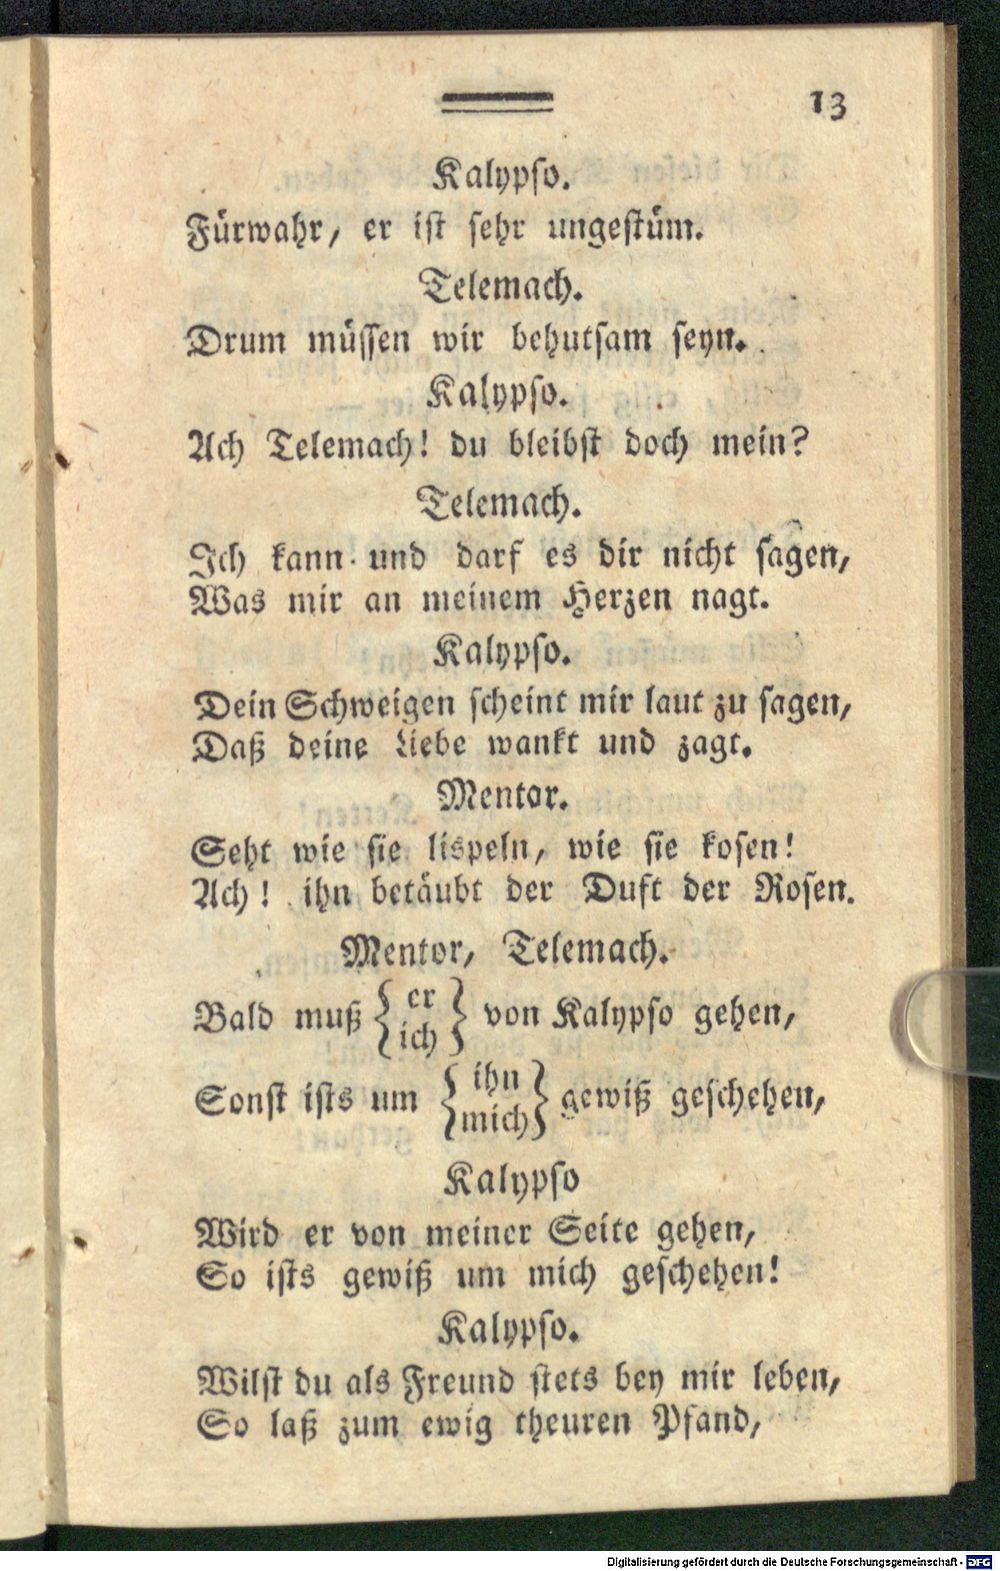 13
Kalypso.
Fürwahr, er ist sehr ungestüm.
Telemach.
Drum müssen wir behutsam seyn.
Kalypso.
Ach Telemach! du bleibst doch mein?
Telemach.
Ich kann und darf es dir nicht sagen,
Was mir an meinem Herzen nagt.
Kalypso.
Dein Schweigen scheint mir laut zu sagen,
Daß deine Liebe wankt und zagt.
Mentor.
Seht wie sie lispeln, wie sie kosen!
Ach! ihn betäubt der Duft der Rosen.
Mentor, Telemach.
Bald muß { er / ich } von Kalypso gehen,
Sonst ists um { ihn / mich } gewiß geschehen,
Kalypso
Wird er von meiner Seite gehen,
So ists gewiß um mich geschehen!
Kalypso.
Wilst du als Freund stets bey mir leben,
So laß zum ewig theuren Pfand,
Digitalisierung gefördert durch die Deutsche Forschungsgemeinschaft - DFG